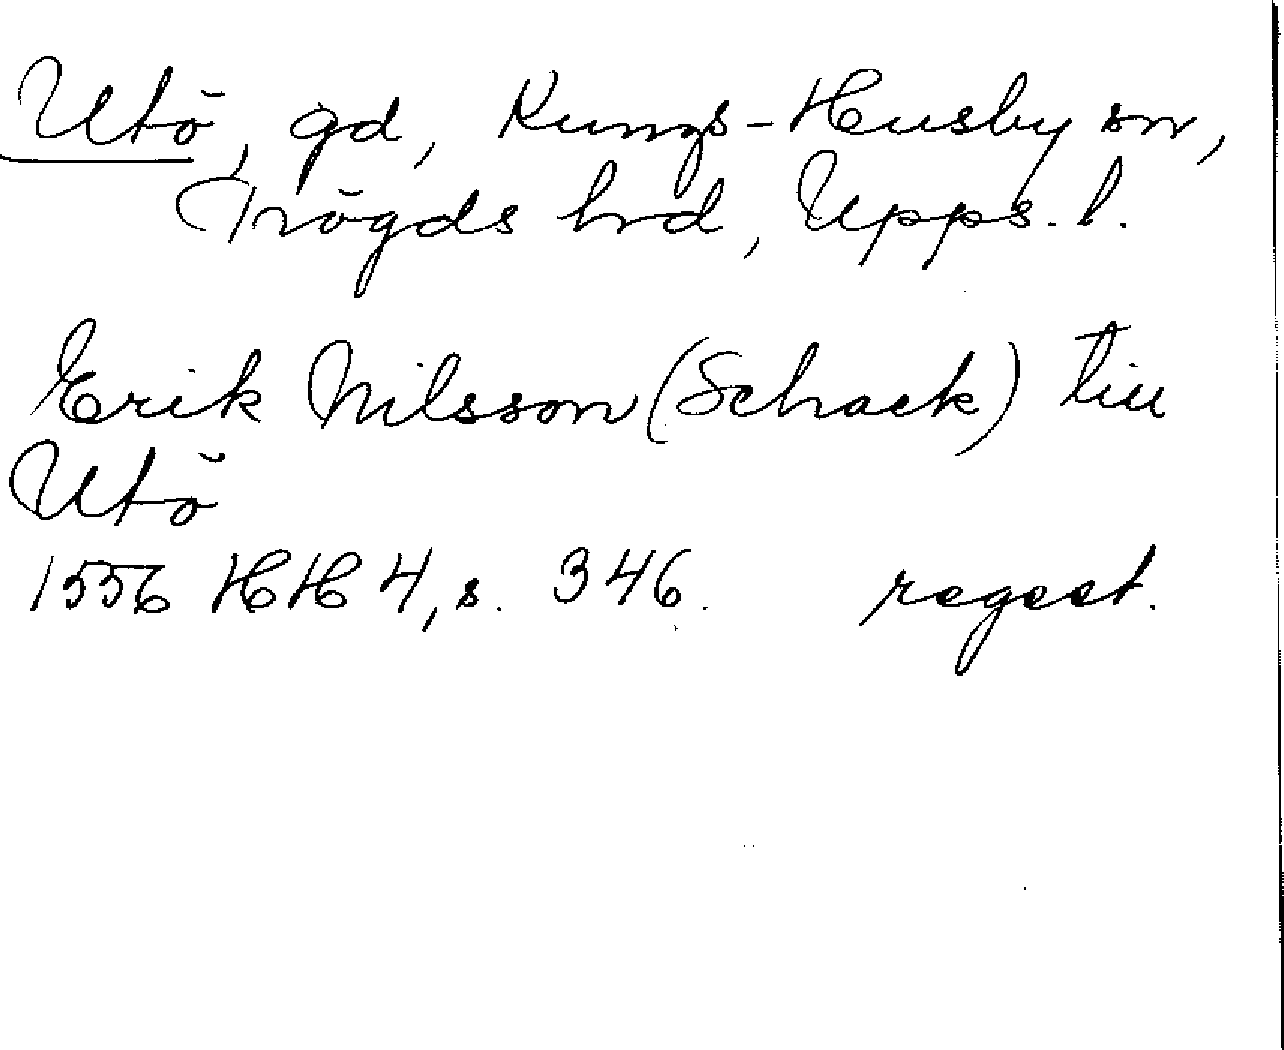 Utö, gd, Kungs-Husby sn,
Trögds hrd, Upps. l.
Erik Nilsson (Schack) till
Utö
1556 HH 4, s. 346. regest.